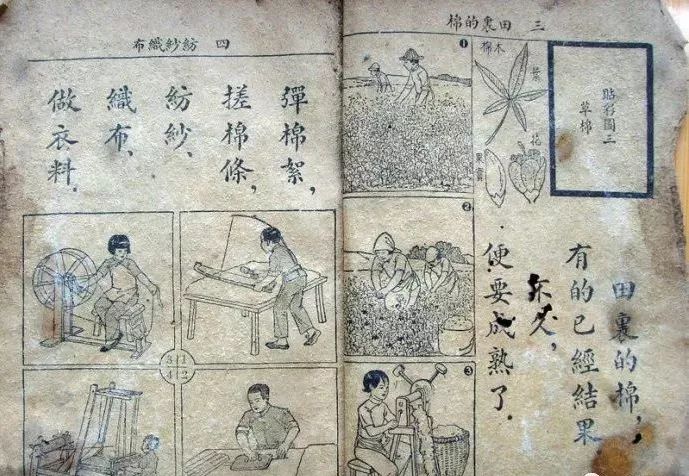 三 田裏的棉
貼彩圖三
草棉
木棉
葉
花
果實
田裏的棉，
有的已經結果
不久，
便要成熟了．
1
2
3
四 紡紗織布
彈棉絮，
搓棉條，
紡紗、
織布、
做衣料．
3 1
4 2